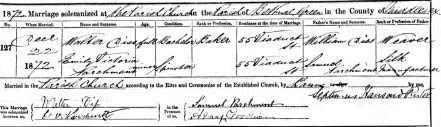 1872 Marriage solemnized at the Parish Church in the Parish of Bethnal Green in the County of Middlesex
No. When Married. Name and Surname. Age. Condition. Rank or Profession. Residence at the time of Marriage. Father's Name and Surname. Rank or Profession of Father.
127 Decr 22 1872
Walter full Bachelor Baker 55 Viaduct St. William Weaver
Emily Victoria Parchment minor Spinster 55 Viaduct St. Samuel Parchment Silk Manufacturer
Married in the Parish Church according to the Rites and Ceremonies of the Established Church, by Banns by me,
Septimus Hansard Rector
This Marriage was solemnized between us,
Walter
E. V. Parchment
in the Presence of us,
Samuel Parchment